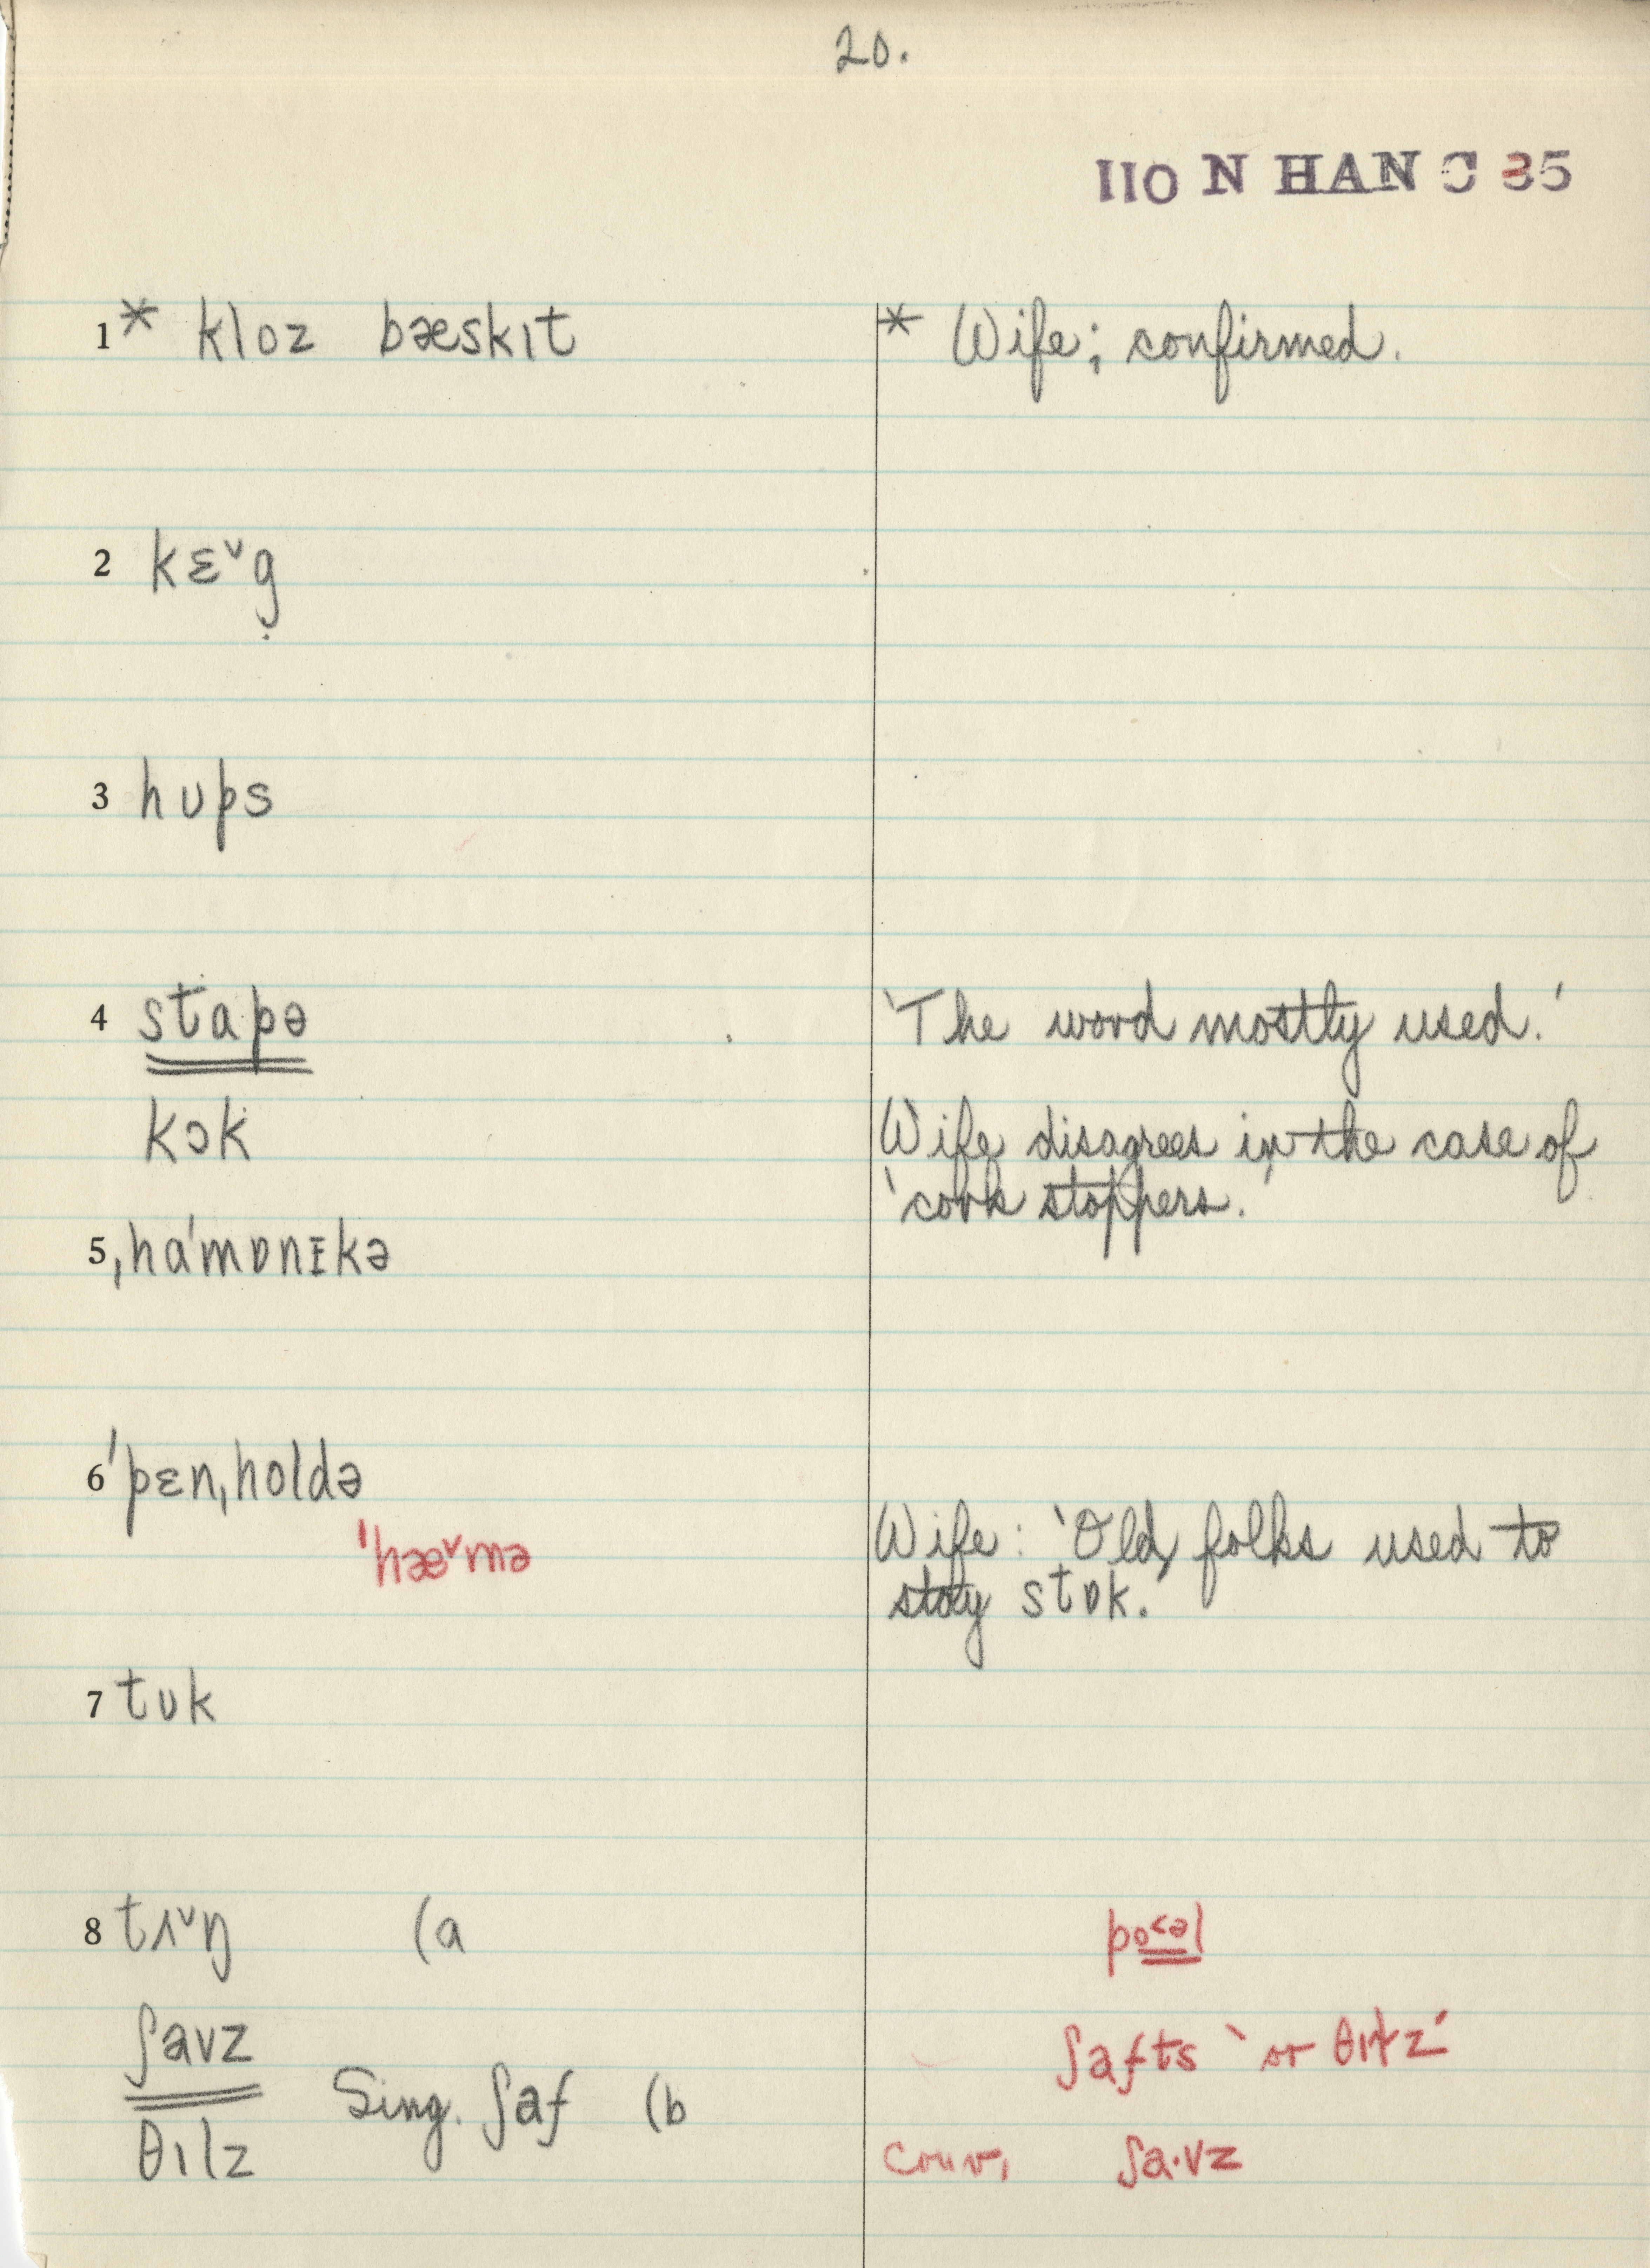 20.
110 N HAN C 35
1 * kloz bæskɪt * Wife; confirmed.
2 kɛ˅g̣
3 hʊps
4 stapə 'The word mostly used.'
kɔk Wife disagrees in the case of
'cork stoppers.'
5 ˌha'mɒnɪkə
6 'pɛnˌholdə
'hæ˅mə Wife: 'Old folks used to
stay stɒk.'
7 tʊk
8 tʌ˅ŋ (a po<əl
ʃavz ʃafts 'or θɪlz'
Sing. ʃaf (b
θɪlz conv. ʃa·vz